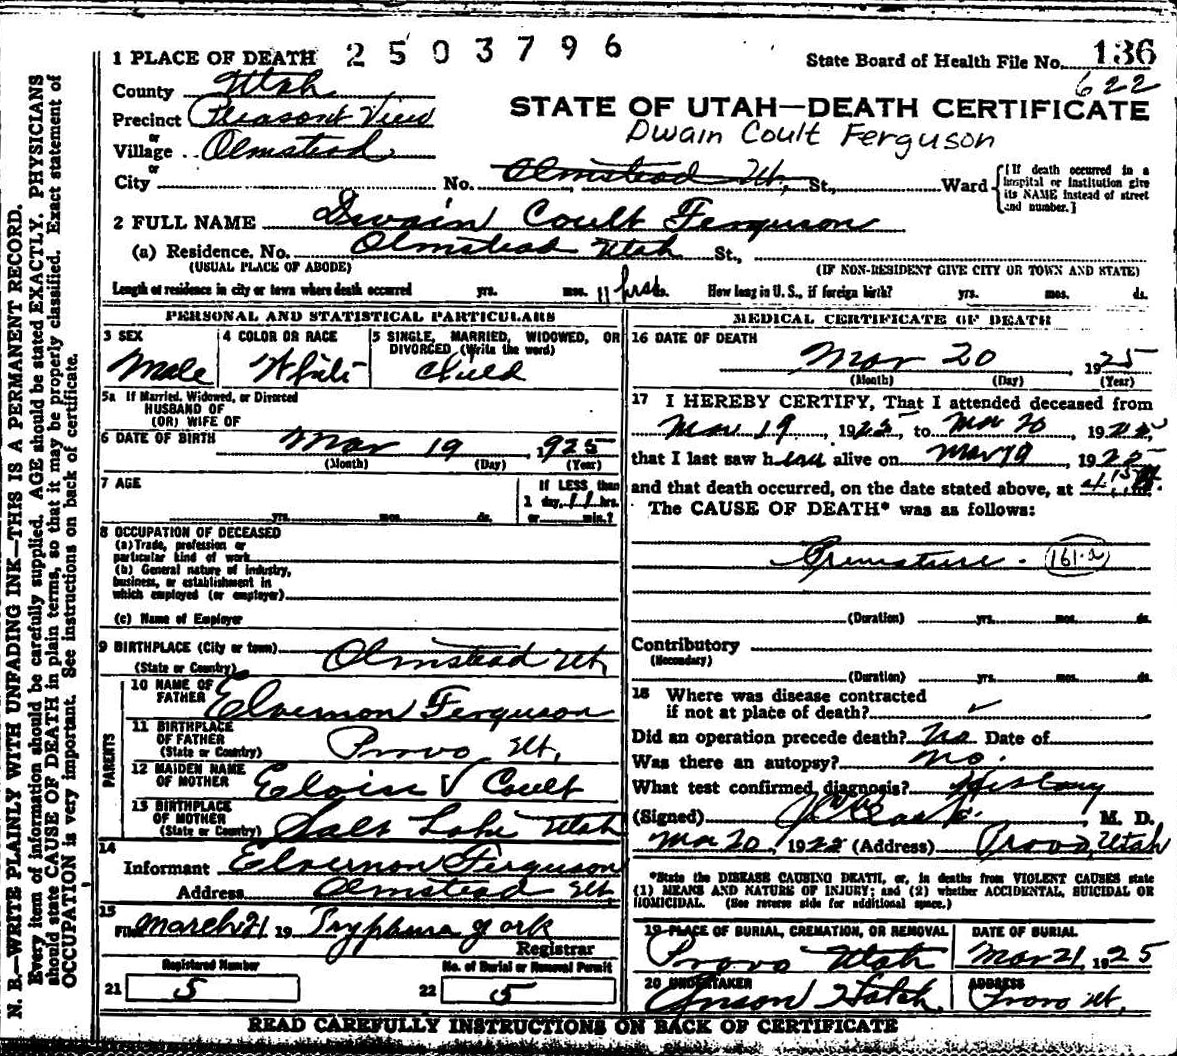 1 PLACE OF DEATH 2503796
State Board of Health File No. 136
622
County Utah
STATE OF UTAH—DEATH CERTIFICATE
Precinct Pleasant View
Dwain Coult Ferguson
or
Village Olmstead
or
City No. Olmstead Ut, St., Ward
{If death occurred in a
hospital or institution give
its NAME instead of street
and number.}
2 FULL NAME Dwain Coult Ferguson
(a) Residence. No. Olmstead Utah St.,
(USUAL PLACE OF ABODE) (IF NON-RESIDENT GIVE CITY OR TOWN AND STATE)
Length of residence in city or town where death occurred yrs. mos. 11 hrs ds. How long in U. S., if foreign birth? yrs. mos. ds.
PERSONAL AND STATISTICAL PARTICULARS
3 SEX
Male
4 COLOR OR RACE
White
5 SINGLE, MARRIED, WIDOWED, OR
DIVORCED (Write the word)
Child
5a If Married, Widowed, or Divorced
HUSBAND OF
(OR) WIFE OF
6 DATE OF BIRTH Mar 19, 1925
(Month) (Day) (Year)
7 AGE
yrs. mos. ds.
If LESS than
1 day, 11 hrs.
or min.?
8 OCCUPATION OF DECEASED
(a) Trade, profession or
particular kind of work
(b) General nature of industry,
business, or establishment in
which employed (or employer)
(c) Name of Employer
9 BIRTHPLACE (City or town) Olmstead Ut,
(State or Country)
PARENTS
10 NAME OF
FATHER Elvernon Ferguson
11 BIRTHPLACE
OF FATHER
(State or Country) Provo Ut,
12 MAIDEN NAME
OF MOTHER Eloise V Coult
13 BIRTHPLACE
OF MOTHER
(State or Country) Salt Lake Utah
14
Informant Elvernon Ferguson
Address Olmstead Ut,
15
Filed March 21 19
Registrar
Registered Number
21 5
No. of Burial or Removal Permit
22 5
MEDICAL CERTIFICATE OF DEATH
16 DATE OF DEATH
Mar 20, 1925
(Month) (Day) (Year)
17 I HEREBY CERTIFY, That I attended deceased from
Mar 19, 1925, to Mar 20, 1925,
that I last saw h alive on Mar 19 1925
and that death occurred, on the date stated above, at 4.15 m.
The CAUSE OF DEATH* was as follows:
Premature. 161.2
(Duration) yrs. mos. ds.
Contributory
(Secondary)
(Duration) yrs. mos. ds.
18 Where was disease contracted
if not at place of death? ✓
Did an operation precede death? No Date of
Was there an autopsy? No.
What test confirmed diagnosis? History
(Signed) M. D.
Mar 20, 1925 (Address) Provo, Utah
*State the DISEASE CAUSING DEATH, or, in deaths from VIOLENT CAUSES state
(1) MEANS AND NATURE OF INJURY; and (2) whether ACCIDENTAL, SUICIDAL OR
HOMICIDAL. (See reverse side for additional space.)
19 PLACE OF BURIAL, CREMATION, OR REMOVAL
Provo Utah
DATE OF BURIAL
Mar 21, 1925
20 UNDERTAKER
Anson Hatch
ADDRESS
Provo Ut.
READ CAREFULLY INSTRUCTIONS ON BACK OF CERTIFICATE
N. B.—WRITE PLAINLY WITH UNFADING INK—THIS IS A PERMANENT RECORD.
Every item of information should be carefully supplied. AGE should be stated EXACTLY. PHYSICIANS
should state CAUSE OF DEATH in plain terms, so that it may be properly classified. Exact statement of
OCCUPATION is very important. See instructions on back of certificate.